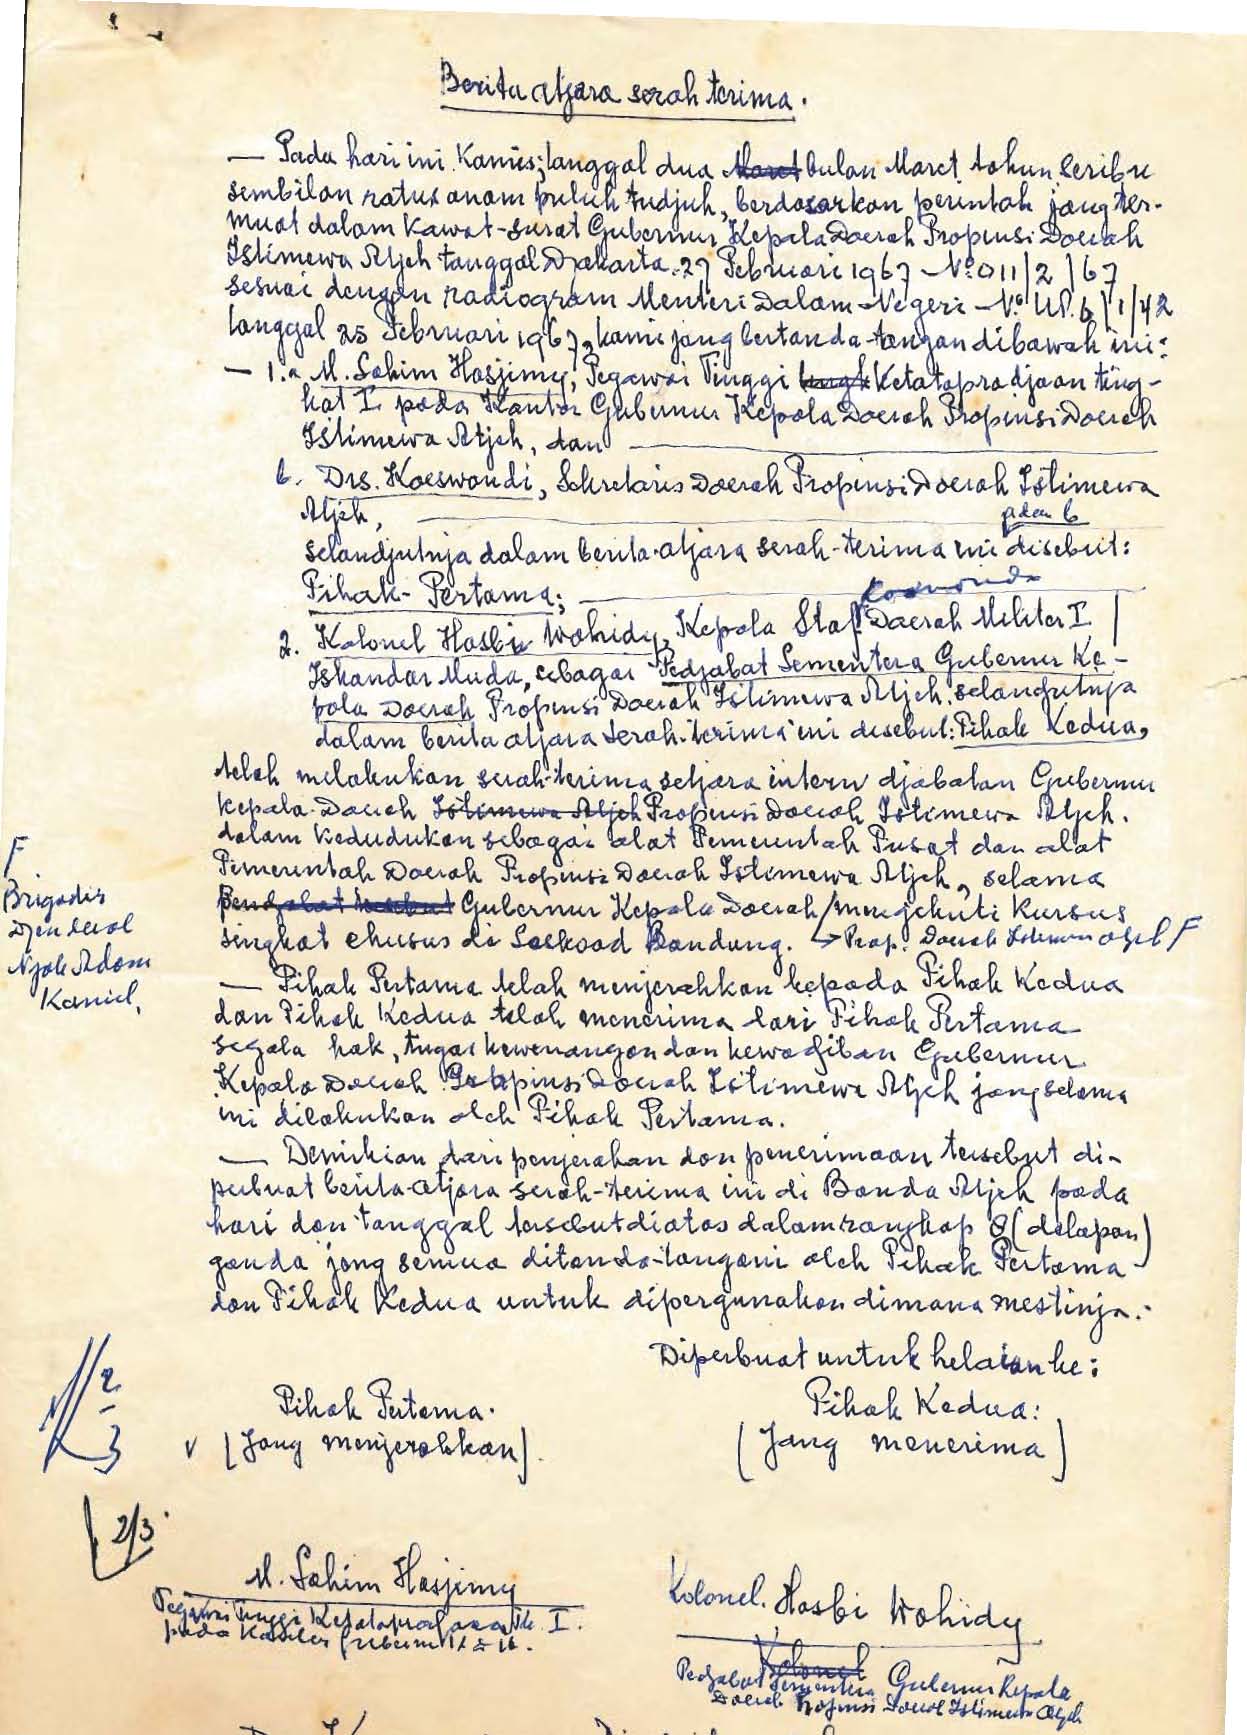 Berita atjara serah terima.
— Pada hari ini Kamis, tanggal dua Maret bulan Maret tahun seribu
sembilan ratus anam puluh tudjuh, berdasarkan perintah jang ter-
muat dalam Kawat-surat Gubernur Kepala Daerah Propinsi Daerah
Istimewa Atjeh tanggal Djakarta 27 Pebruari 1967 No 011/2/67
sesuai dengan radiogram Menteri Dalam Negeri No. UP. 6/1/42
tanggal 25 Februari 1967, kami jang bertanda-tangan dibawah ini:
— 1.a M. Sahim Hasjimy, Pegawai Tinggi Ketatapradjaan ting-
kat I pada Kantor Gubernur Kepala Daerah Propinsi Daerah
Istimewa Atjeh, dan
b. Drs. Koeswandi, Sekretaris Daerah Propinsi Daerah Istimewa
Atjeh,
a dan b
selandjutnja dalam berita-atjara serah-terima ini disebut:
Pihak-Pertama;
Komando
2. Kolonel Hasbi Wahidy, Kepala Staf Daerah Militer I
Iskandar Muda, sebagai Pedjabat Sementera Gubernur Ke-
pala Daerah Propinsi Daerah Istimewa Atjeh, selangutnja
dalam berita atjara serah-terima ini disebut: Pihak Kedua,
telah melakukan serah-terima setjara intern djabatan Gubernur
Kepala Daerah Istimewa Atjeh Propinsi Daerah Istimewa Atjeh.
dalam kedudukan sebagai alat Pemerintah Pusat dan alat
Pemerintah Daerah Propinsi Daerah Istimewa Atjeh, selama
Pendjabat tersebut Gubernur Kepala Daerah / mengikuti Kursus
singkat chusus di Seskoad Bandung. → Prop. Daerah Istimewa Atjeh F
F
Brigadir
Djenderal
Njak Adam
Kamil,
— Pihak Pertama telah menjerahkan kepada Pihak Kedua
dan Pihak Kedua telah menerima dari Pihak Pertama
segala hak, tugas kewenangan dan kewadjiban Gubernur
Kepala Daerah Propinsi Daerah Istimewa Atjeh jang selama
ini dilakukan oleh Pihak Pertama.
— Demikian dari penjerahan dan penerimaan tersebut di-
perbuat berita-atjara serah-terima ini di Banda Atjeh pada
hari dan tanggal tersebut diatas dalam rangkap 8 (delapan)
ganda jang semua ditanda-tangani oleh Pihak Pertama
dan Pihak Kedua untuk dipergunakan dimana mestinja.-
Diperbuat untuk helaian ke:
Pihak Pertama. Pihak Kedua:
v (Jang menjerahkan). (Jang menerima)
2
-
3
2/3.
M. Sahim Hasjimy
Pegawai Tinggi Ketatapradjaan Tk. I.
pada Kantor
Kolonel. Hasbi Wahidy
Kolonel
Pedjabat Sementera Gubernur Kepala
Daerah Propinsi Daerah Istimewa Atjeh